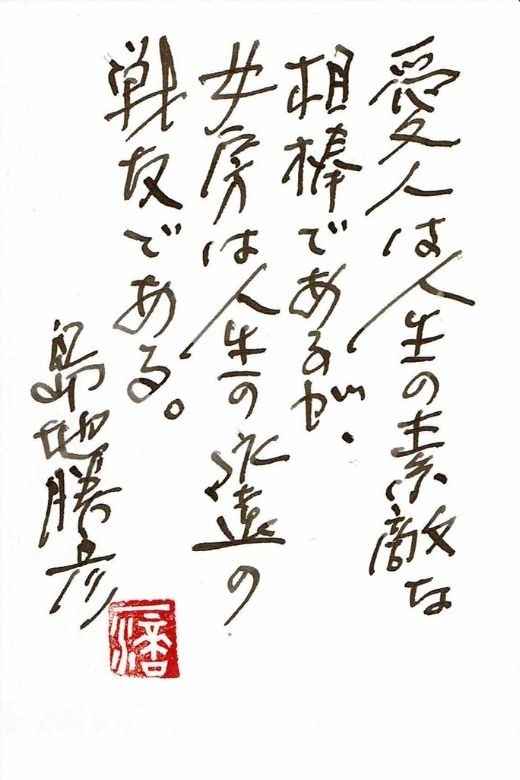 愛人は人生の素敵な
相棒であるが、
女房は人生の永遠の
戦友である。
島地勝彦